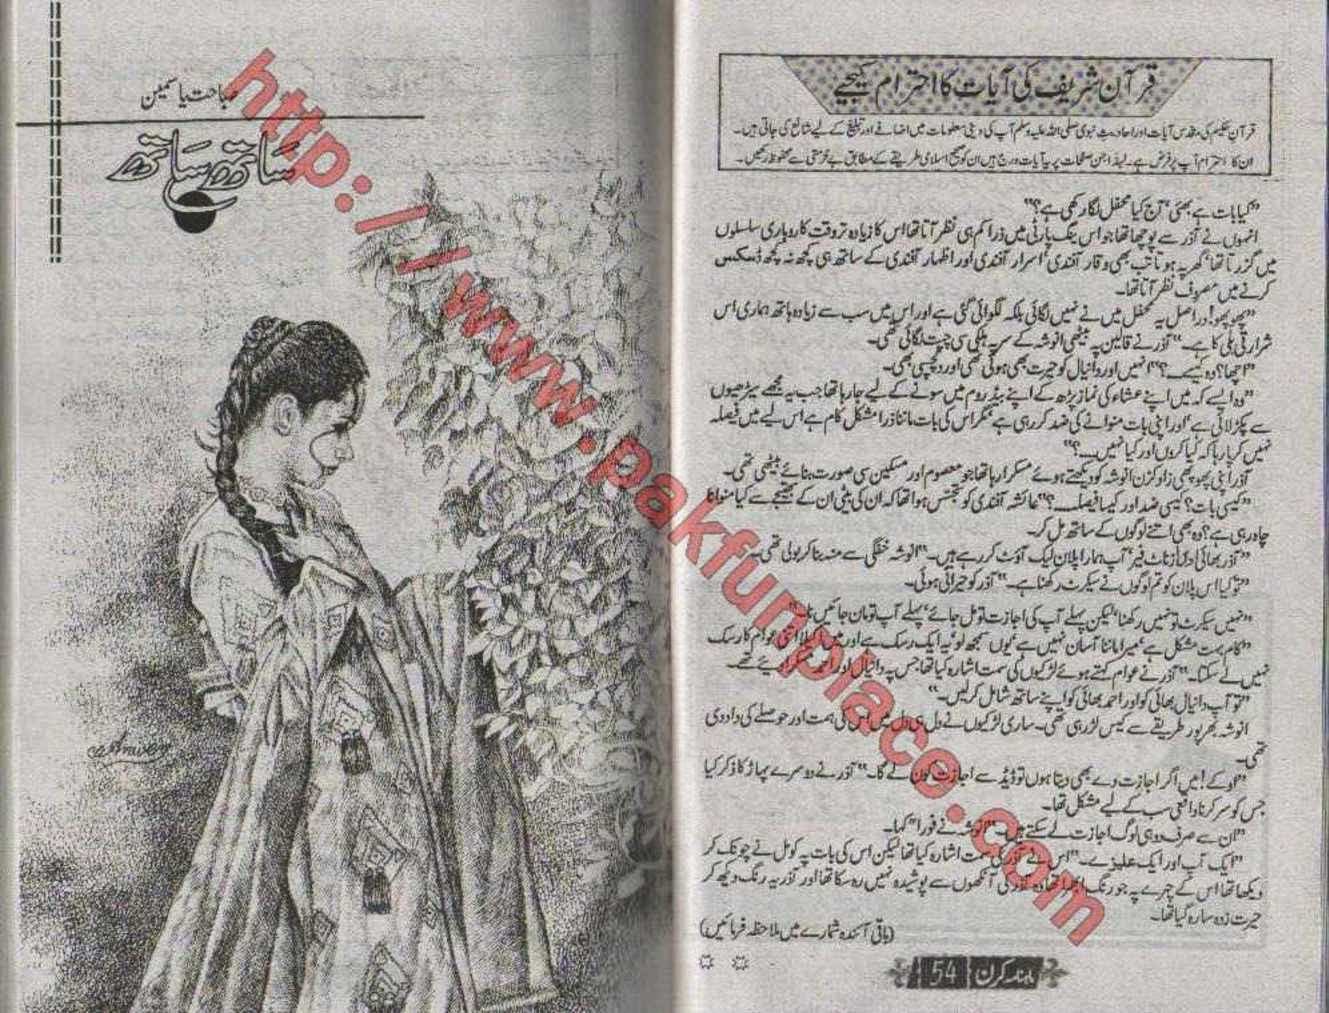 قرآن شریف کی آیات کا احترام کیجیے
قرآن حکیم کی مقدس آیات اور احادیث نبوی صلی اللہ علیہ وسلم آپ کی دینی معلومات میں اضافے اور تبلیغ کے لیے شائع کی جاتی ہیں۔
ان کا احترام آپ پر فرض ہے۔ لہٰذا جن صفحات پر یہ آیات درج ہیں ان کو صحیح اسلامی طریقے کے مطابق بے حرمتی سے محفوظ رکھیں۔
"کیا بات ہے بھئی' آج کیا محفل لگا رکھی ہے؟"
انہوں نے آذر سے پوچھا تھا جو اس ینگ پارٹی میں ذرا کم ہی نظر آتا تھا اس کا زیادہ تر وقت کاروباری سلسلوں
میں گزرتا تھا' گھر پہ ہوتا تب بھی وقار آفندی' اسرار آفندی اور اظہار آفندی کے ساتھ ہی کچھ نہ کچھ ڈسکس
کرنے میں مصروف نظر آتا تھا۔
"پھوپھو! دراصل یہ محفل میں نے نہیں لگائی بلکہ لگوائی گئی ہے اور اس میں سب سے زیادہ ہاتھ ہماری اس
شرارتی بلی کا ہے۔" آذر نے قالین پہ بیٹھی انوشہ کے سر پہ ہلکی سی چپت لگائی تھی۔
"اچھا؟ وہ کیسے۔۔۔؟" انہیں اور دانیال کو حیرت بھی ہوئی تھی اور دلچسپی بھی۔
"وہ ایسے کہ میں اپنے عشاء کی نماز پڑھ کے اپنے بیڈ روم میں سونے کے لیے جا رہا تھا جب یہ مجھے سیڑھیوں
سے پکڑ لائی ہے' اور اپنی بات منوانے کی ضد کر رہی ہے' مگر اس کی بات ماننا ذرا مشکل کام ہے اس لیے میں فیصلہ
نہیں کر پا رہا کہ کیا کروں اور کیا نہیں۔۔۔؟"
آذر اپنی پھوپھی زاد کزن انوشہ کو دیکھتے ہوئے مسکرا رہا تھا جو معصوم اور مسکین سی صورت بنائے بیٹھی تھی۔
"کیسی بات؟ کیسی ضد اور کیسا فیصلہ۔۔۔؟" عائشہ آفندی کو تجسس ہوا تھا کہ ان کی بیٹی ان کے بھتیجے سے کیا منوانا
چاہ رہی ہے؟ وہ بھی اتنے لوگوں کے ساتھ مل کر۔
"آذر بھائی دس از ناٹ فیر' آپ ہمارا پلان لیک آؤٹ کر رہے ہیں۔" انوشہ خفگی سے منہ بنا کر بولی تھی۔
"تو کیا اس پلان کو تم لوگوں نے سیکرٹ رکھنا ہے۔" آذر کو حیرانی ہوئی۔
"نہیں سیکرٹ تو نہیں رکھنا' لیکن پہلے آپ کی اجازت تو مل جائے' پہلے آپ تو مان جائیں نا۔"
"کام بہت مشکل ہے' میرا ماننا آسان نہیں ہے' یوں سمجھ لو' یہ ایک رسک ہے اور میں اکیلا اتنی عوام کا رسک
نہیں لے سکتا۔" آذر نے عوام کہتے ہوئے لڑکیوں کی سمت اشارہ کیا تھا' جس پہ دانیال اور احمد مسکرا دیے تھے۔
"تو آپ دانیال بھائی کو اور احمد بھائی کو اپنے ساتھ شامل کر لیں۔"
انوشہ بھرپور طریقے سے کیس لڑ رہی تھی۔ ساری لڑکیوں نے دل ہی دل میں اس کی ہمت اور حوصلے کی داد دی
تھی۔
"اوکے! میں اگر اجازت دے بھی دیتا ہوں تو ڈیڈ سے اجازت کون لے گا۔" آذر نے دوسرے پہاڑ کا ذکر کیا
جس کو سر کرنا واقعی سب کے لیے مشکل تھا۔
"ان سے صرف دو ہی لوگ اجازت لے سکتے ہیں۔" انوشہ نے فوراً" کہا۔
"ایک آپ اور ایک علیزے۔" اس نے آذر کی سمت اشارہ کیا تھا لیکن اس کی بات پہ کومل نے چونک کر
دیکھا تھا اس کے چہرے پہ جو رنگ ابھرا تھا وہ آذر کی آنکھوں سے پوشیدہ نہیں رہ سکا تھا اور آذر یہ رنگ دیکھ کر
حیرت زدہ سا رہ گیا تھا۔
(باقی آئندہ شمارے میں ملاحظہ فرمائیں)
ماہنامہ کرن 54
صباحت یاسمین
ساتھ ساتھ
http://www.pakfunplace.com